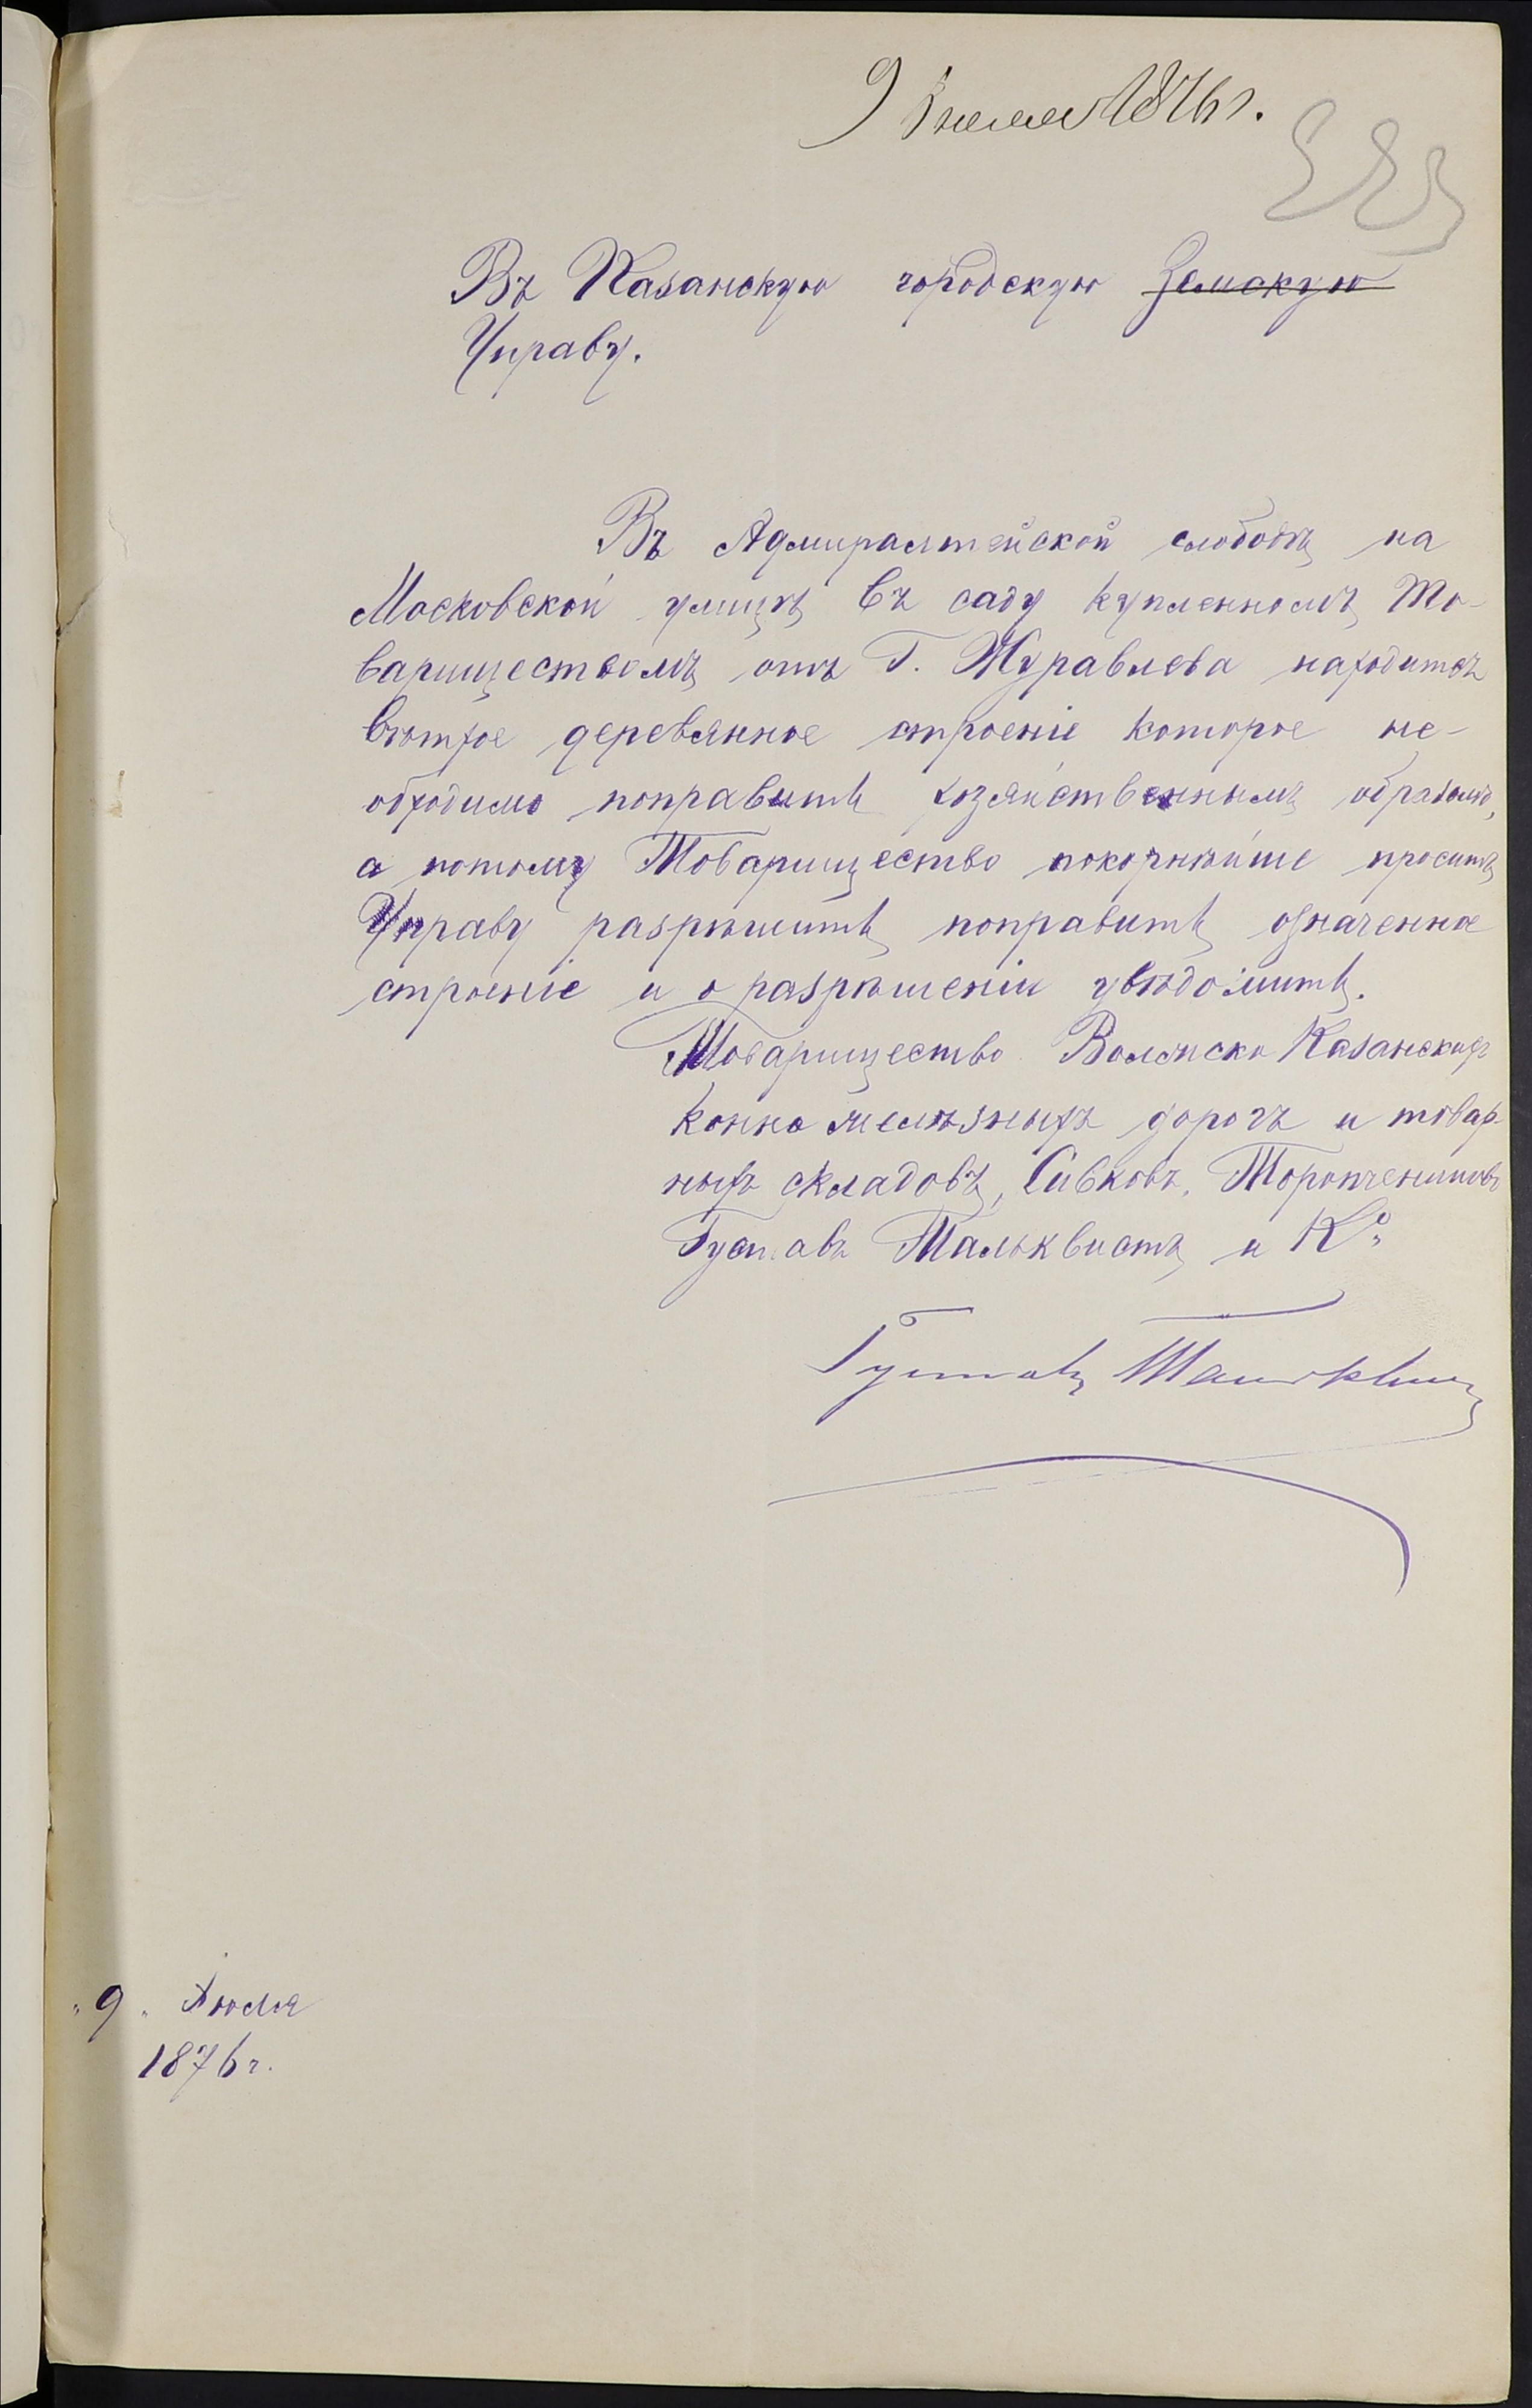 9 Іюля 1876 г.
Въ Казанскую городскую Земскую
Управу.
Въ Адмиралтейской слободѣ на
Московской улицѣ въ саду купленномъ То-
вариществомъ отъ Г. Журавлева находится
вѣтхое деревянное строеніе которое не-
обходимо поправить хозяйственнымъ образомъ,
а потому Товарищество покорнѣйше проситъ
Управу разрѣшить поправить означенное
строеніе и о разрѣшеніи увѣдомить.
Товарищество Волжско Казанскихъ
конно желѣзныхъ дорогъ и товар-
ныхъ складовъ, Сивковъ,
Густавъ Тальквистъ и Ко.
Густавъ Тальквистъ
"9" Іюля
1876 г.